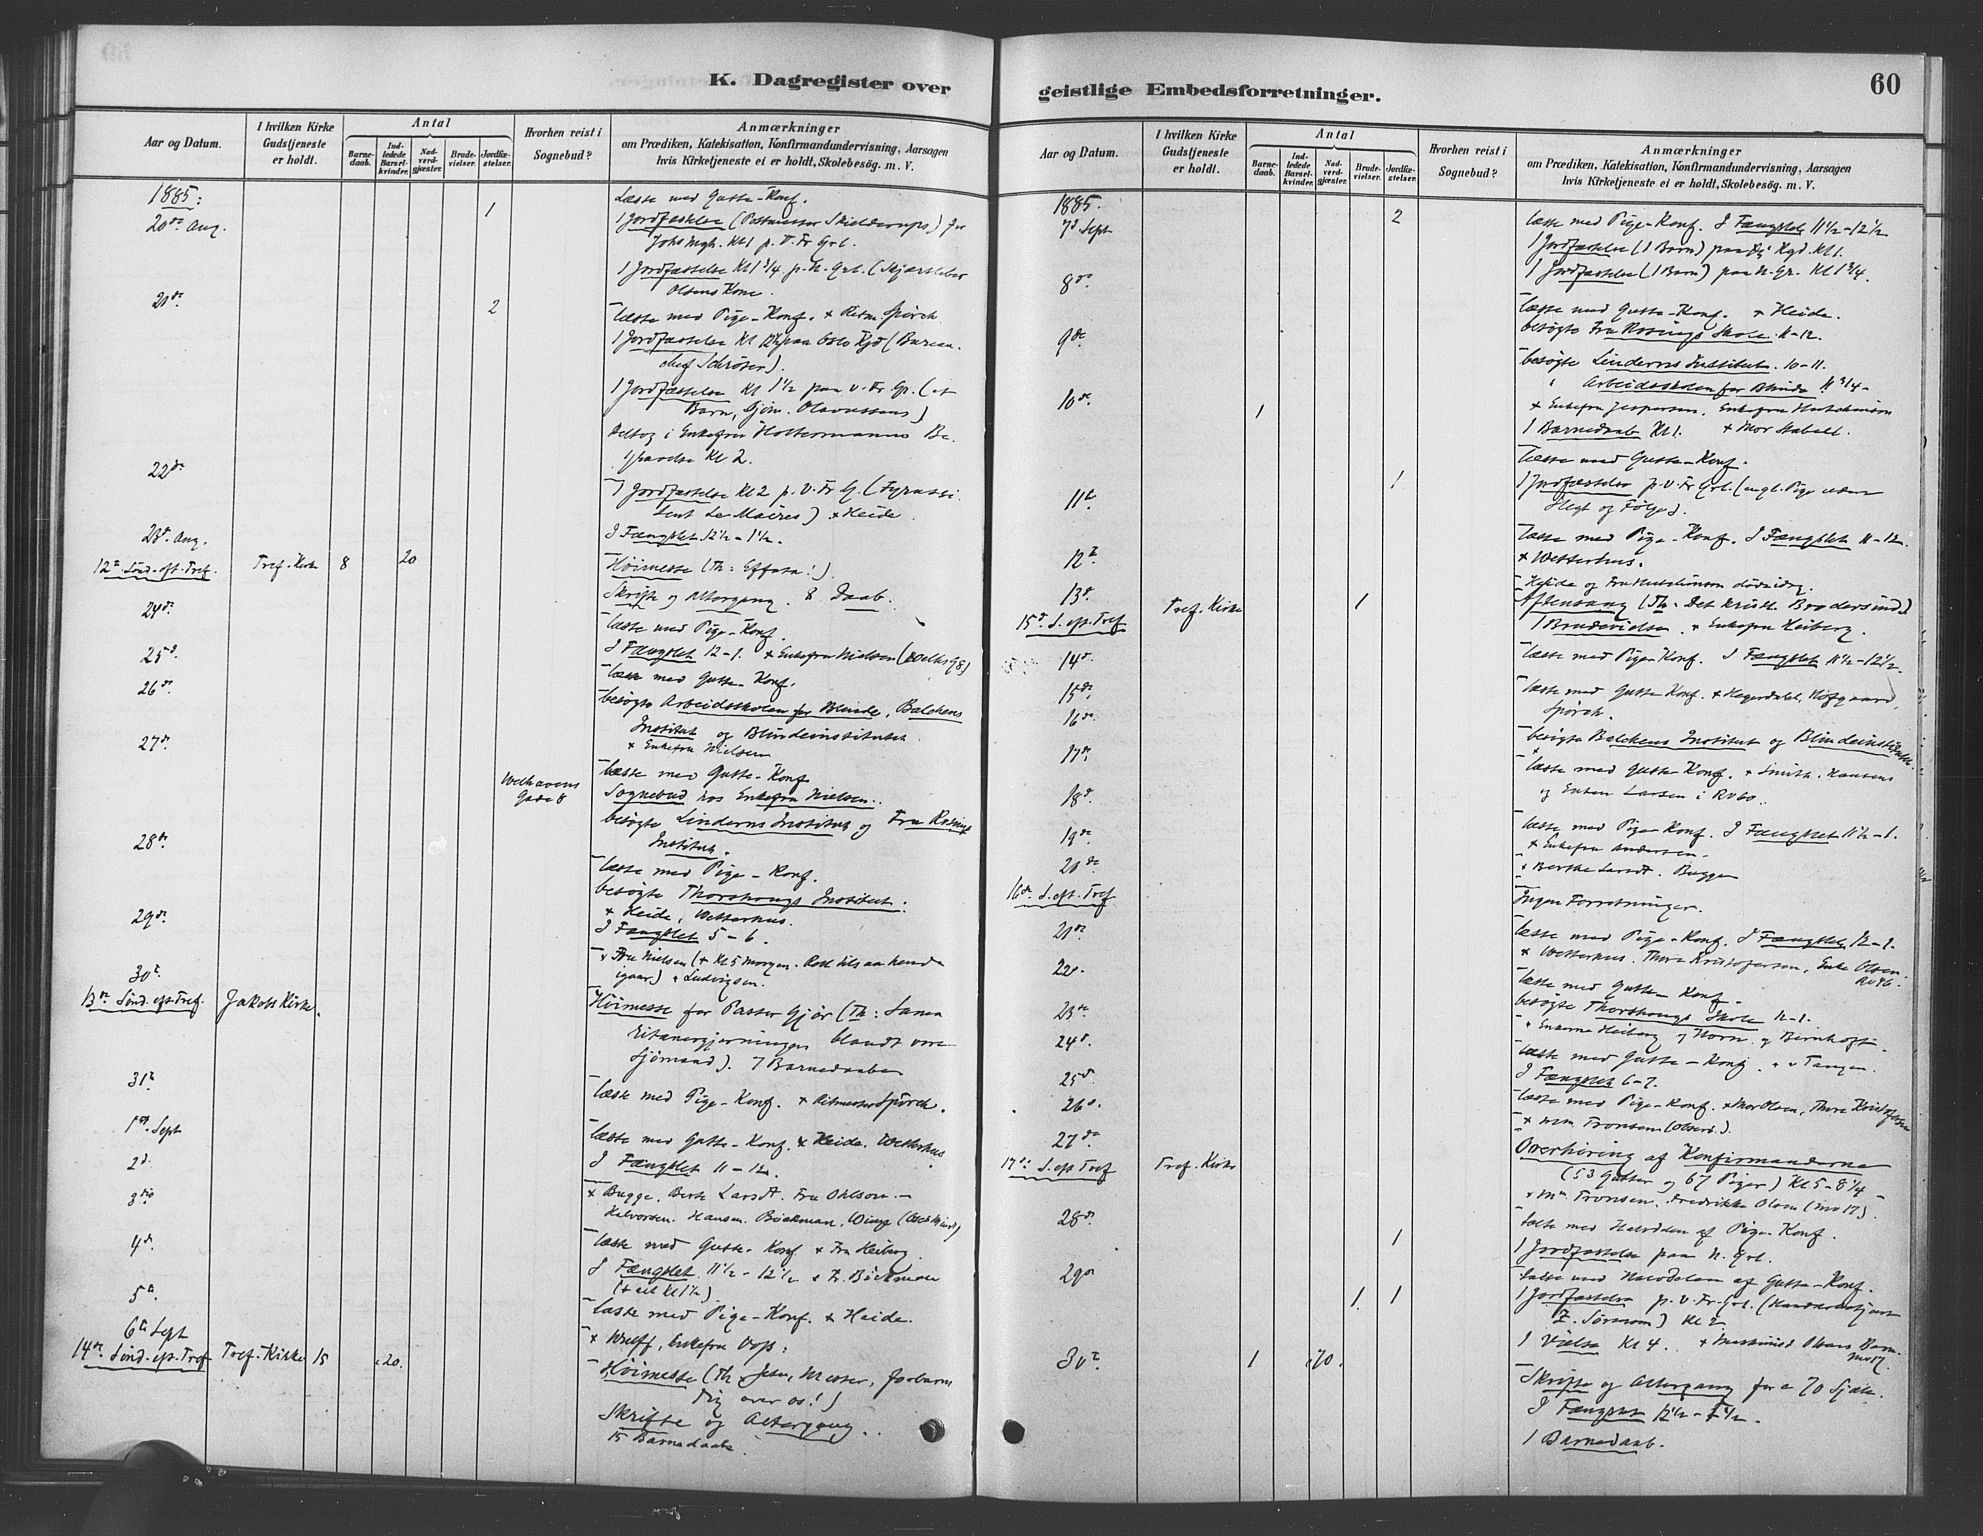 K. Dagregister over
Aar og Datum.
I hvilken Kirke Gudstjeneste er holdt.
Antal
Barnedaab.
Indledede Barselkvinder.
Nadverdgjæster.
Brudevielser.
Jordfæstelser.
Hvorhen reist i Sognebud?
Anmærkninger
om Prædiken, Katekisation, Konfirmandundervisning, Aarsagen
hvis Kirketjeneste ei er holdt, Skolebesøg. m. V.
1885:
læste med Gutte-Konf.
20de Aug. 1
1 Jordfæstelse (Postmester Skielderups) for
Johs Mgh. Kl 1 p. V. Fr Grl.
1 Jordfæstelse Kl 1 3/4 p. N. Grl.
Olsens Kone.
21de 2
læste med Pige-Konf. + Ritm Spørck.
1 Jordfæstelse Kl paa Oslo Kgd (Bureau-
chef Schrøter).
1 Jordfæstelse Kl 1 1/2 paa V. Fr Gr. (et
Barn, Olavussens)
Deltog i Enkefru Holtermanns Be-
gravelse Kl 2.
22de
1 Jordfæstelse Kl 2 p. V. Fr G. (Fyrassi-
stent Le Maires) + Heide.
23de Aug.
I Fængslet 12 1/2 - 1 1/2.
12te Sønd. eft. Tref. Tref. Kirke 8 20
Høimesse (Th: Effata!).
Skrifte og Altergang. 8 Daab.
24de
læste med Pige-Konf.
I Fængslet 12-1. + Enkefru Nielsen (Welhs G 8)
25d.
læste med Gutte-Konf.
26de
besøgte Arbeidsskolen for Blinde, Balchens
Institut og Blindeinstitutet
+ Enkefru Nielsen
27de
læste med Gutte-Konf
Welhavens Gade 8
Sognebud hos Enkefru Nielsen.
besøgte Linderns Institut og Fru Rosings
Institut.
28de
læste med Pige-Konf.
besøgte Thorshaugs Institut.
+ Heide, Wetterhus.
29de
I Fængslet 5-6.
+ Fru Nielsen (+ Kl 5 Morgen. Rost tilsaa hende
igaar) + Ludvigsen.
30te
13de Sønd. eft. Tref. Jakobs Kirke.
Høimesse for Pastor Gjør (Th: Sama-
ritanergjerningen blandt vore
Sjømænd). 7 Barnedaab
31te
læste med Pige-Konf. + Ritmester Spørck.
1ste Sept
læste med Gutte-Konf. + Heide. Wetterhus
2d.
I Fængslet 11-12.
3die
+ Bugge, Berte Larsdt. Fru Ohlson.
Halvorsen. Hansen. Bøckman, Winge
4de
læste med Gutte-Konf + Fru Heiberg.
I Fængslet 11 1/2 - 12 1/2 + Z. Bøckman
5te
læste med Pige-Konf. + Heide.
6te Sept
+ Wulff, Enkefru Voss.
14de Sønd. eft. Tref Tref. Kirke 15 20.
Høimesse (Th. Jesu, Mester, forbarm
dig over os!)
Skrifte og Altergang.
15 Barnedaab.
geistlige Embedsforretninger.
60
Aar og Datum.
I hvilken Kirke Gudstjeneste er holdt.
Antal
Barnedaab.
Indledede Barselkvinder.
Nadverdgjæster.
Brudevielser.
Jordfæstelser.
Hvorhen reist i Sognebud?
Anmærkninger
om Prædiken, Katekisation, Konfirmandundervisning, Aarsagen
hvis Kirketjeneste ei er holdt, Skolebesøg. m. V.
1885.
7d Sept 2
læste med Pige-Konf. I Fængslet 11 1/2 - 12 1/2
1 Jordfæstelse (1 Barn) paa Kgd. Kl 1.
1 Jordfæstelse (1 Barn) paa N. Gr. Kl 1 3/4.
8de
læste med Gutte-Konf. + Heide.
besøgte Fru Rosings Skole. 11-12.
9de
besøgte Linderns Institut. 10-11.
" Arbeidsskolen for Blinde 11 3/4 -
10de 1
+ Enkefru Jespersen, Enkefru Hutchinson
1 Barnedaab Kl 1. + Mor Stabell.
læste med Gutte-Konf.
11te 1
1 Jordfæstelse p. V. Fr Grl. (ugl. Pige uden
Slegt og Følge).
læste med Pige-Konf. I Fængslet 11-12.
12te
+ Wetterhus.
Heide og Fru Hutchinson døde idag.
13de
15de S. eft. Tref Tref. Kirke 1
Aftensang (Th: Det kristl. Brodersind)
1 Brudevielse. + Enkefru Heiberg.
14d.
læste med Pige-Konf. I Fængslet 11 1/2 - 12 1/2
15de
læste med Gutte Konf. + Hagerdahl, Hofgaard,
Spørck.
16de
besøgte Balchens Institut og Blindeinstitutet.
17de
læste med Gutte-Konf. + Smith. Hansens
og Enken Larsen i Rv 60.
18d.
læste med Pige-Konf. I Fængslet 11 1/2 - 1.
19de
+ Enkefru Andersen.
+ Berthe Larsdt. Bugge
20de
16de S. eft. Tref
Ingen Forretninger.
21de
læste med Pige-Konf. I Fængslet 12-1.
+ Wetterhus. Thora Kristofersen, Enke Olsen.
Rv 46.
22de
læste med Gutte-Konf.
besøgte Thorshaugs Skole 12-1.
23de
+ Enkerne Heiberg og Horn og Bernhoft.
24d.
læste med Gutte-Konf. + Tangen.
25d.
I Fængslet 6-7.
26d.
læste med Pige-Konf. + Mor Olsen, Thora Kristofersen
+ Mm Tronsen
27de
17de S. eft Tref Tref. Kirke
Overhøring af Konfirmanderne
(53 Gutter og 67 Piger) Kl 5 - 8 1/4
+ Mm Tronsen. Fredrikke Olsen
28de 1
læste med Halvdelen af Pige-Konf.
1 Jordfæstelse paa N. Grl.
29de 1 1
læste med Halvdelen af Gutte-Konf.
1 Jordfæstelse p. V. Fr. Grl.
Z. Sørensen) Kl 2
1 Vielse Kl 4. + Olsens Barn
30te 1 70.
Skrifte og Altergang for c 70 Sjæle.
I Fængslet
1 Barnedaab.